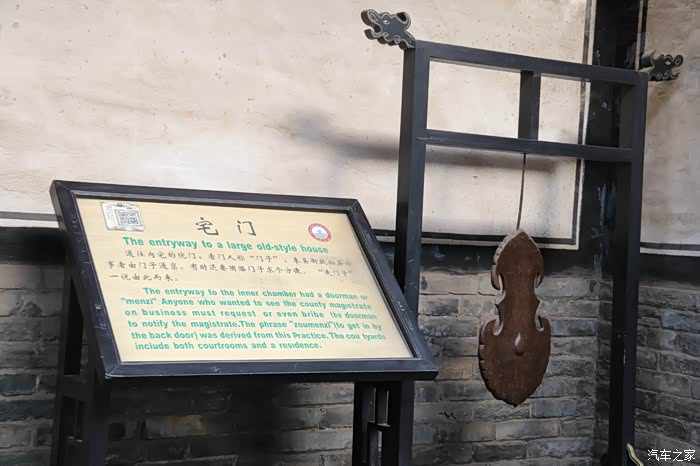 宅门
The entryway to a large old-style house
通往内宅的院门,有门人称“门子”,来县衙找知县办
事者由门子通禀,有时还要贿赂门子求个方便。“走门子”
一说由此而来。
The entryway to the inner chamber had a doorman or
"menzi" Anyone who wanted to see the county magistrate
on business must request or even bribe the doorman
to notify the magistrate.The phrase "zoumenzi"(to get in by
the back door) was derived from this Practice.The cou tyards
include both courtrooms and a residence.
汽车之家